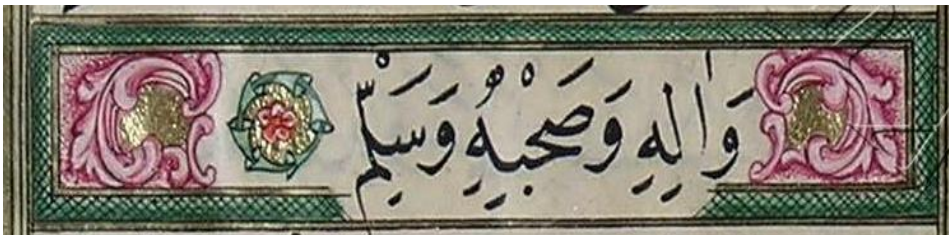 وَاٰلِهِ وَصَحْبِهِ وَسَلِّمْ